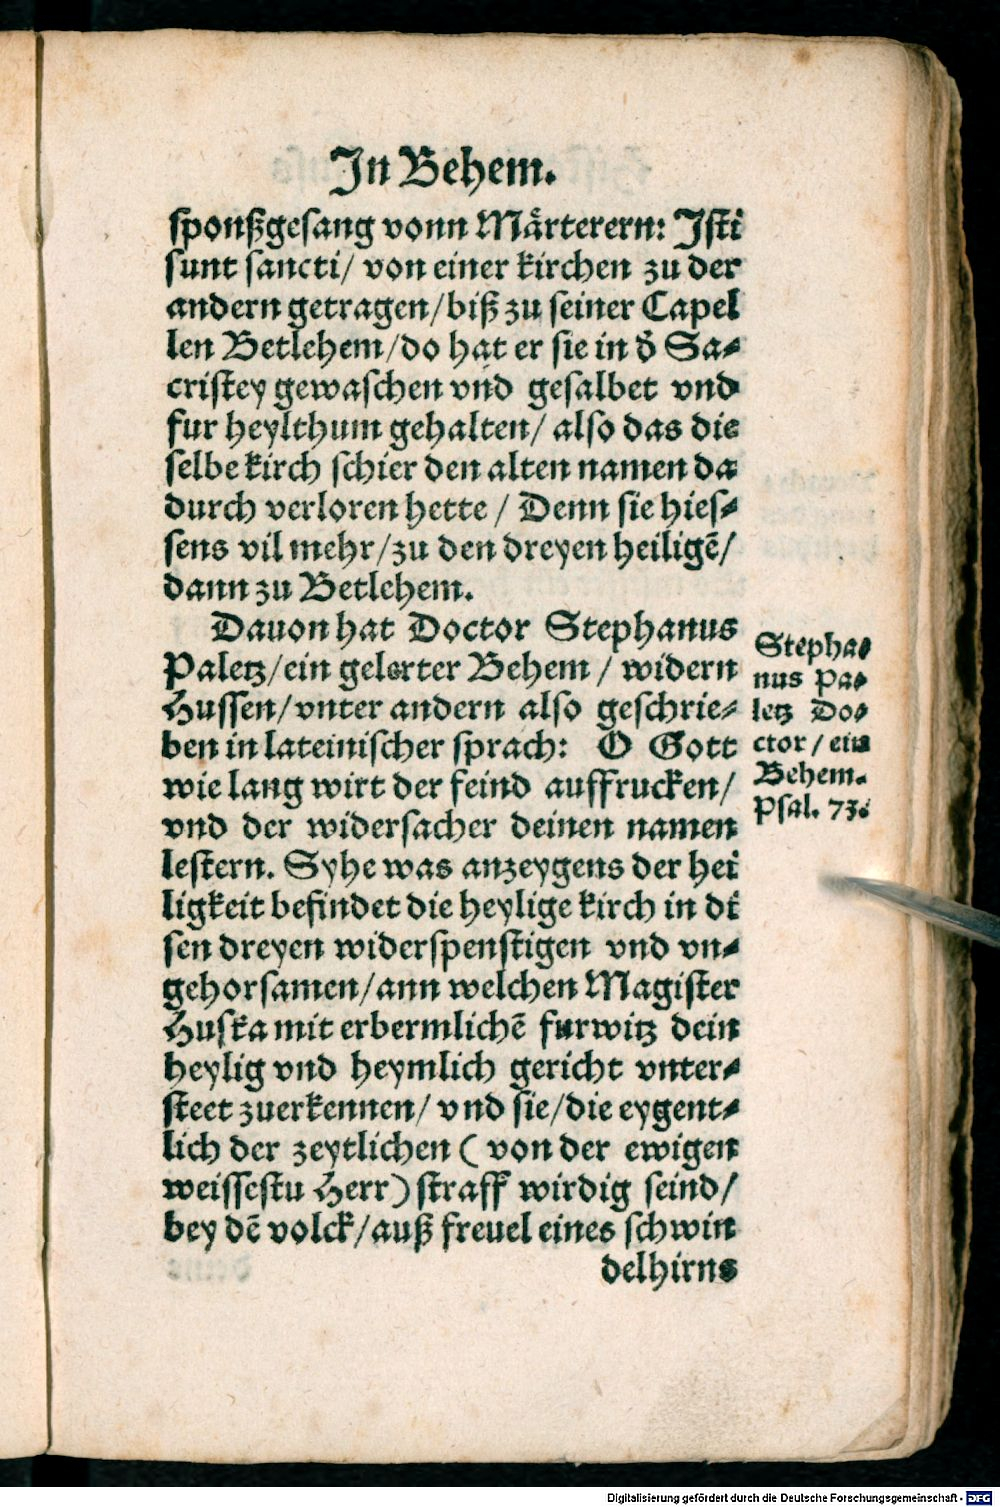 In Behem.
sponßgesang vonn Märterern: Isti
sunt sancti/ von einer kirchen zu der
andern getragen/biß zu seiner Capel
len Betlehem/do hat er sie in d̕ Sa⸗
cristey gewaschen vnd gesalbet vnd
fur heylthum gehalten/ also das die
selbe kirch schier den alten namen da
durch verloren hette / Denn sie hies⸗
sens vil mehr/zu den dreyen heiligē/
dann zu Betlehem.
Dauon hat Doctor Stephanus
Paletz/ein gelerter Behem / widern
Hussen/vnter andern also geschrie⸗
ben in lateinischer sprach: O Gott
wie lang wirt der feind auffrucken/
vnd der widersacher deinen namen
lestern. Syhe was anzeygens der hei
ligkeit befindet die heylige kirch in di
sen dreyen widerspenstigen vnd vn⸗
gehorsamen/ann welchen Magister
Huska mit erbermlichē furwitz dein
heylig vnd heymlich gericht vnter⸗
steet zuerkennen/ vnd sie/die eygent⸗
lich der zeytlichen ( von der ewigen
weissestu Herr) straff wirdig seind/
bey dē volck/auß freuel eines schwin
delhirns
Stepha⸗
nus Pa⸗
letz Do⸗
ctor / ein
Behem.
Psal. 73.
Digitalisierung gefördert durch die Deutsche Forschungsgemeinschaft - DFG